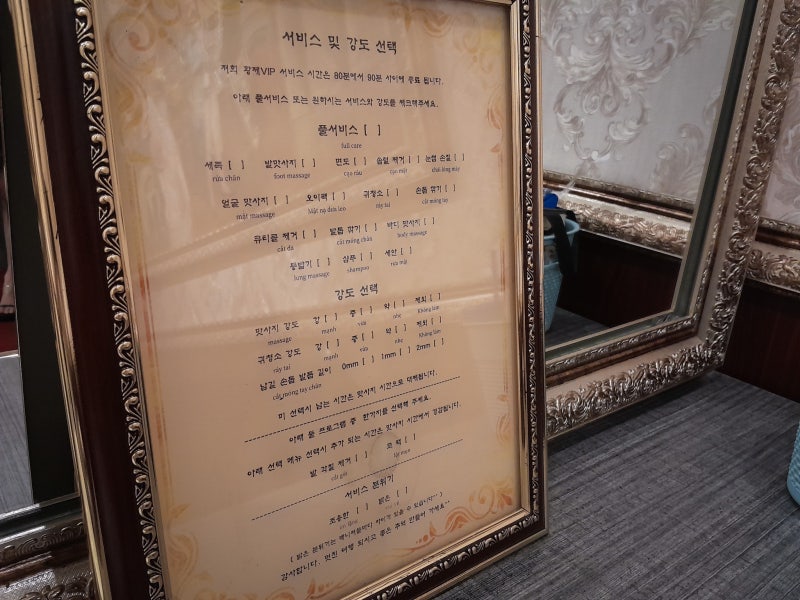 서비스 및 강도 선택
저희 황제VIP 서비스 시간은 80분에서 90분 사이에 종료 됩니다.
아래 풀서비스 또는 원하시는 서비스와 강도를 체크해주세요.
풀서비스 [ ]
full care
세족 [ ] 발맛사지 [ ] 면도 [ ] 솜털 제거 [ ] 눈썹 손질 [ ]
rửa chân foot massage cạo râu cạo mặt chải lông mày
얼굴 맛사지 [ ] 오이팩 [ ] 귀청소 [ ] 손톱 깎기 [ ]
mặt massage Mặt nạ dưa leo ráy tai cắt móng tay
큐티클 제거 [ ] 발톱 깎기 [ ] 바디 맛사지 [ ]
cắt da cắt móng chân body massage
등밟기 [ ] 샴푸 [ ] 세안 [ ]
lưng massage shampoo rửa mặt
강도 선택
맛사지 강도 강 [ ] 중 [ ] 약 [ ] 제외 [ ]
massage mạnh vừa nhẹ Không làm
귀청소 강도 강 [ ] 중 [ ] 약 [ ] 제외 [ ]
ráy tai mạnh vừa nhẹ Không làm
남길 손톱 발톱 길이 0mm [ ] 1mm [ ] 2mm [ ]
cắt móng tay chân
미 선택시 남는 시간은 맛사지 시간으로 대체됩니다.
아래 둘 프로그램 중 한가지를 선택해 주세요.
아래 선택 메뉴 선택시 추가 되는 시간은 맛사지 시간에서 경감됩니다.
발 각질 제거 [ ] 코 팩 [ ]
cắt gót
서비스 분위기
조용한 [ ] 밝은 [ ]
( 밝은 분위기는 매니저들마다 차이가 있을 수 있습니다^^ )
감사합니다. 멋진 여행 되시고 좋은 추억 만들어 가세요^^